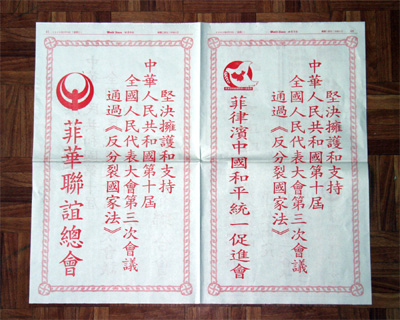 堅決擁護和支持
中華人民共和國第十屆
全國人民代表大會第三次會議
通過《反分裂國家法》
菲律濱中國和平統一促進會
堅決擁護和支持
中華人民共和國第十屆
全國人民代表大會第三次會議
通過《反分裂國家法》
菲華聯誼總會